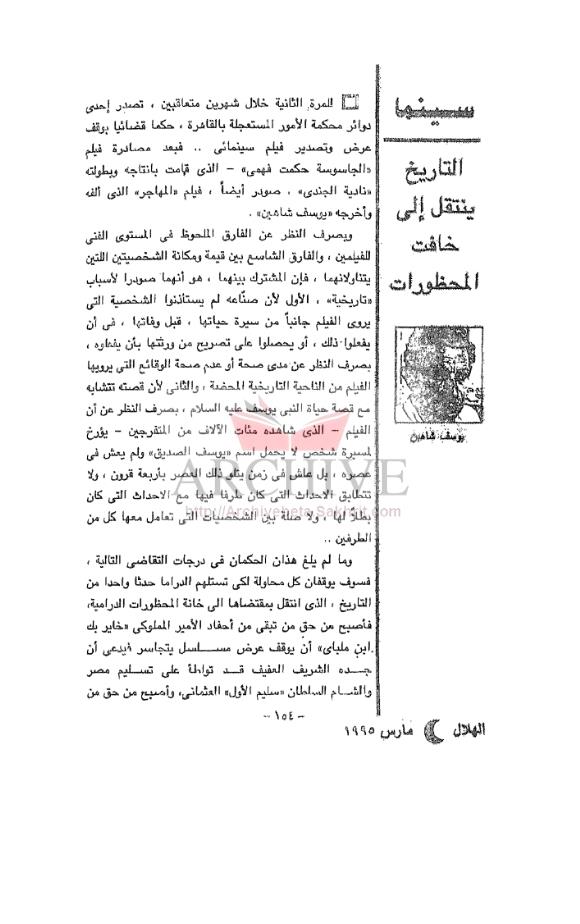 سينما
التاريخ
ينتقل إلى
خافت
المحظورات
يوسف شاهين
للمرة الثانية خلال شهرين متعاقبين ، تصدر إحدى
دوائر محكمة الأمور المستعجلة بالقاهرة ، حكما قضائيا بوقف
عرض وتصدير فيلم سينمائى .. فبعد مصادرة فيلم
«الجاسوسة حكمت فهمى» – الذى قامت بانتاجه وبطولته
«نادية الجندى» ، صودر أيضاً ، فيلم «المهاجر» الذى ألفه
وأخرجه «يوسف شاهين» .
ويصرف النظر عن الفارق الملحوظ فى المستوى الفنى
للفيلمين ، والفارق الشاسع بين قيمة ومكانة الشخصيتين اللتين
يتناولانهما ، فإن المشترك بينهما ، هو أنهما صودرا لأسباب
«تاريخية» ، الأول لأن صنّاعه لم يستأذنوا الشخصية التى
يروى الفيلم جانباً من سيرة حياتها ، قبل وفاتها ، فى أن
يفعلوا ذلك ، أو يحصلوا على تصريح من ورثتها بأن يفعلوه ،
بصرف النظر عن مدى صحة أو عدم صحة الوقائع التى يرويها
الفيلم من الناحية التاريخية المحضة ، والثانى لأن قصته تتشابه
مع قصة حياة النبى يوسف عليه السلام ، بصرف النظر عن أن
الفيلم – الذى شاهده مئات الآلاف من المتفرجين – يؤرخ
لمسيرة شخص لا يحمل اسم «يوسف الصديق» ولم يعش فى
عصره ، بل عاش فى زمن يتلو ذلك العصر بأربعة قرون ، ولا
تتطابق الاحداث التى كان طرفا فيها مع الاحداث التى كان
بطلاً لها ، ولا صلة بين الشخصيات التى تعامل معها كل من
الطرفين ..
وما لم يلغ هذان الحكمان فى درجات التقاضى التالية ،
فسوف يوقفان كل محاولة لكى تستلهم الدراما حدثا واحدا من
التاريخ ، الذى انتقل بمقتضاها الى خانة المحظورات الدرامية،
فأصبح من حق من تبقى من أحفاد الأمير المملوكى «خاير بك
ابن ملباى» أن يوقف عرض مسلسل يتجاسر فيدعى أن
جده الشريف العفيف قد تواطأ على تسليم مصر
والشام السلطان «سليم الأول» العثمانى، وأصبح من حق من
– ١٥٤ –
الهلال مارس ١٩٩٥
ARCHIVE
http://Archivebeta.Sakhrit.com